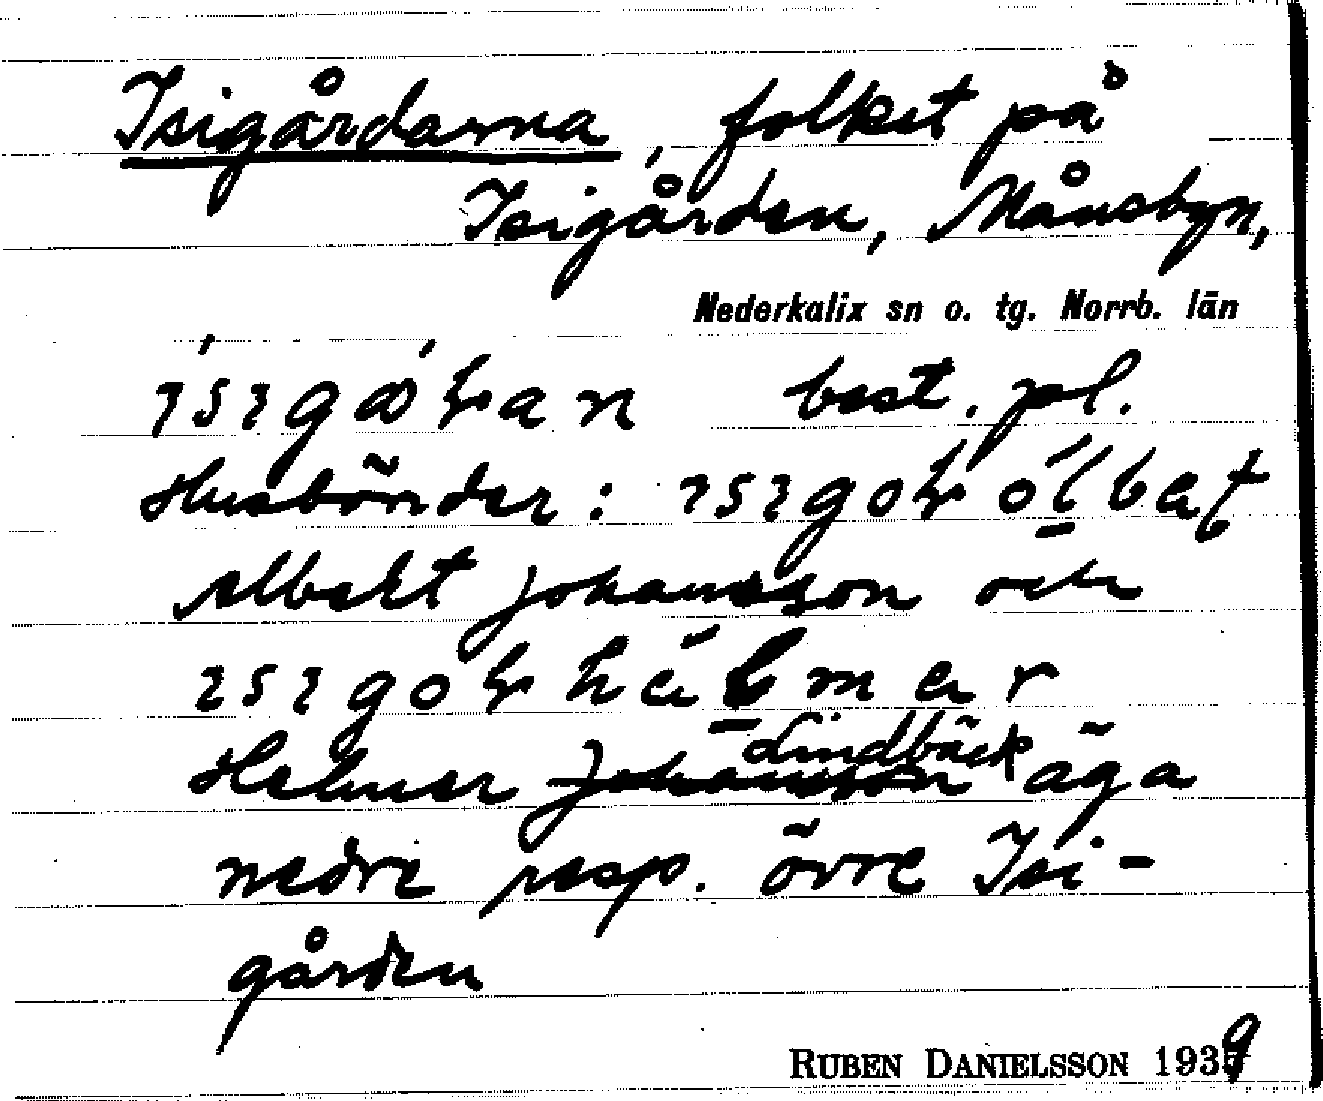 Isigårdarna, folket på
Isigården, Månsbyn,
Nederkalix sn o. tg. Norrb. län
best. pl.
Husbönder:
Albert Johansson och
Helmer ~~Johansson~~ Lindbäck äga
nedre resp. övre Isi-
gården
RUBEN DANIELSSON 1939